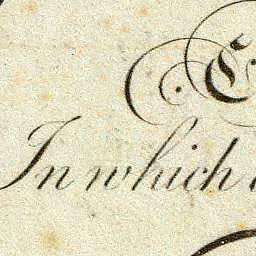 In which